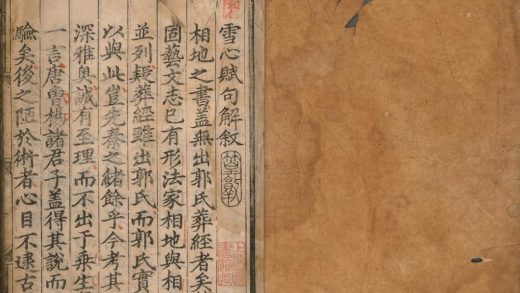 雪心賦句解敘
相地之書蓋無出郭氏葬經者矣
固藝文志已有形法家相地與相
並列疑葬經雖出郭氏而郭氏實
以與此豈先秦之緒餘乎今考其
深雅奧誠有至理而不出于乘生
一言唐曾楊諸君子蓋得其說而
驗矣後之陋於術者心目不逮古